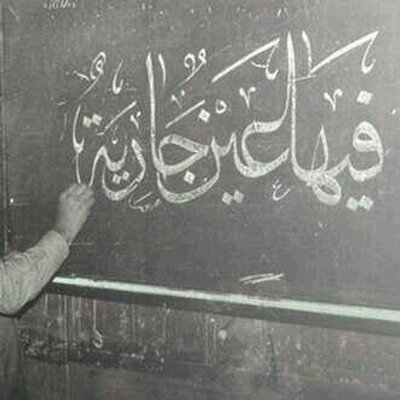 فيها عين جارية